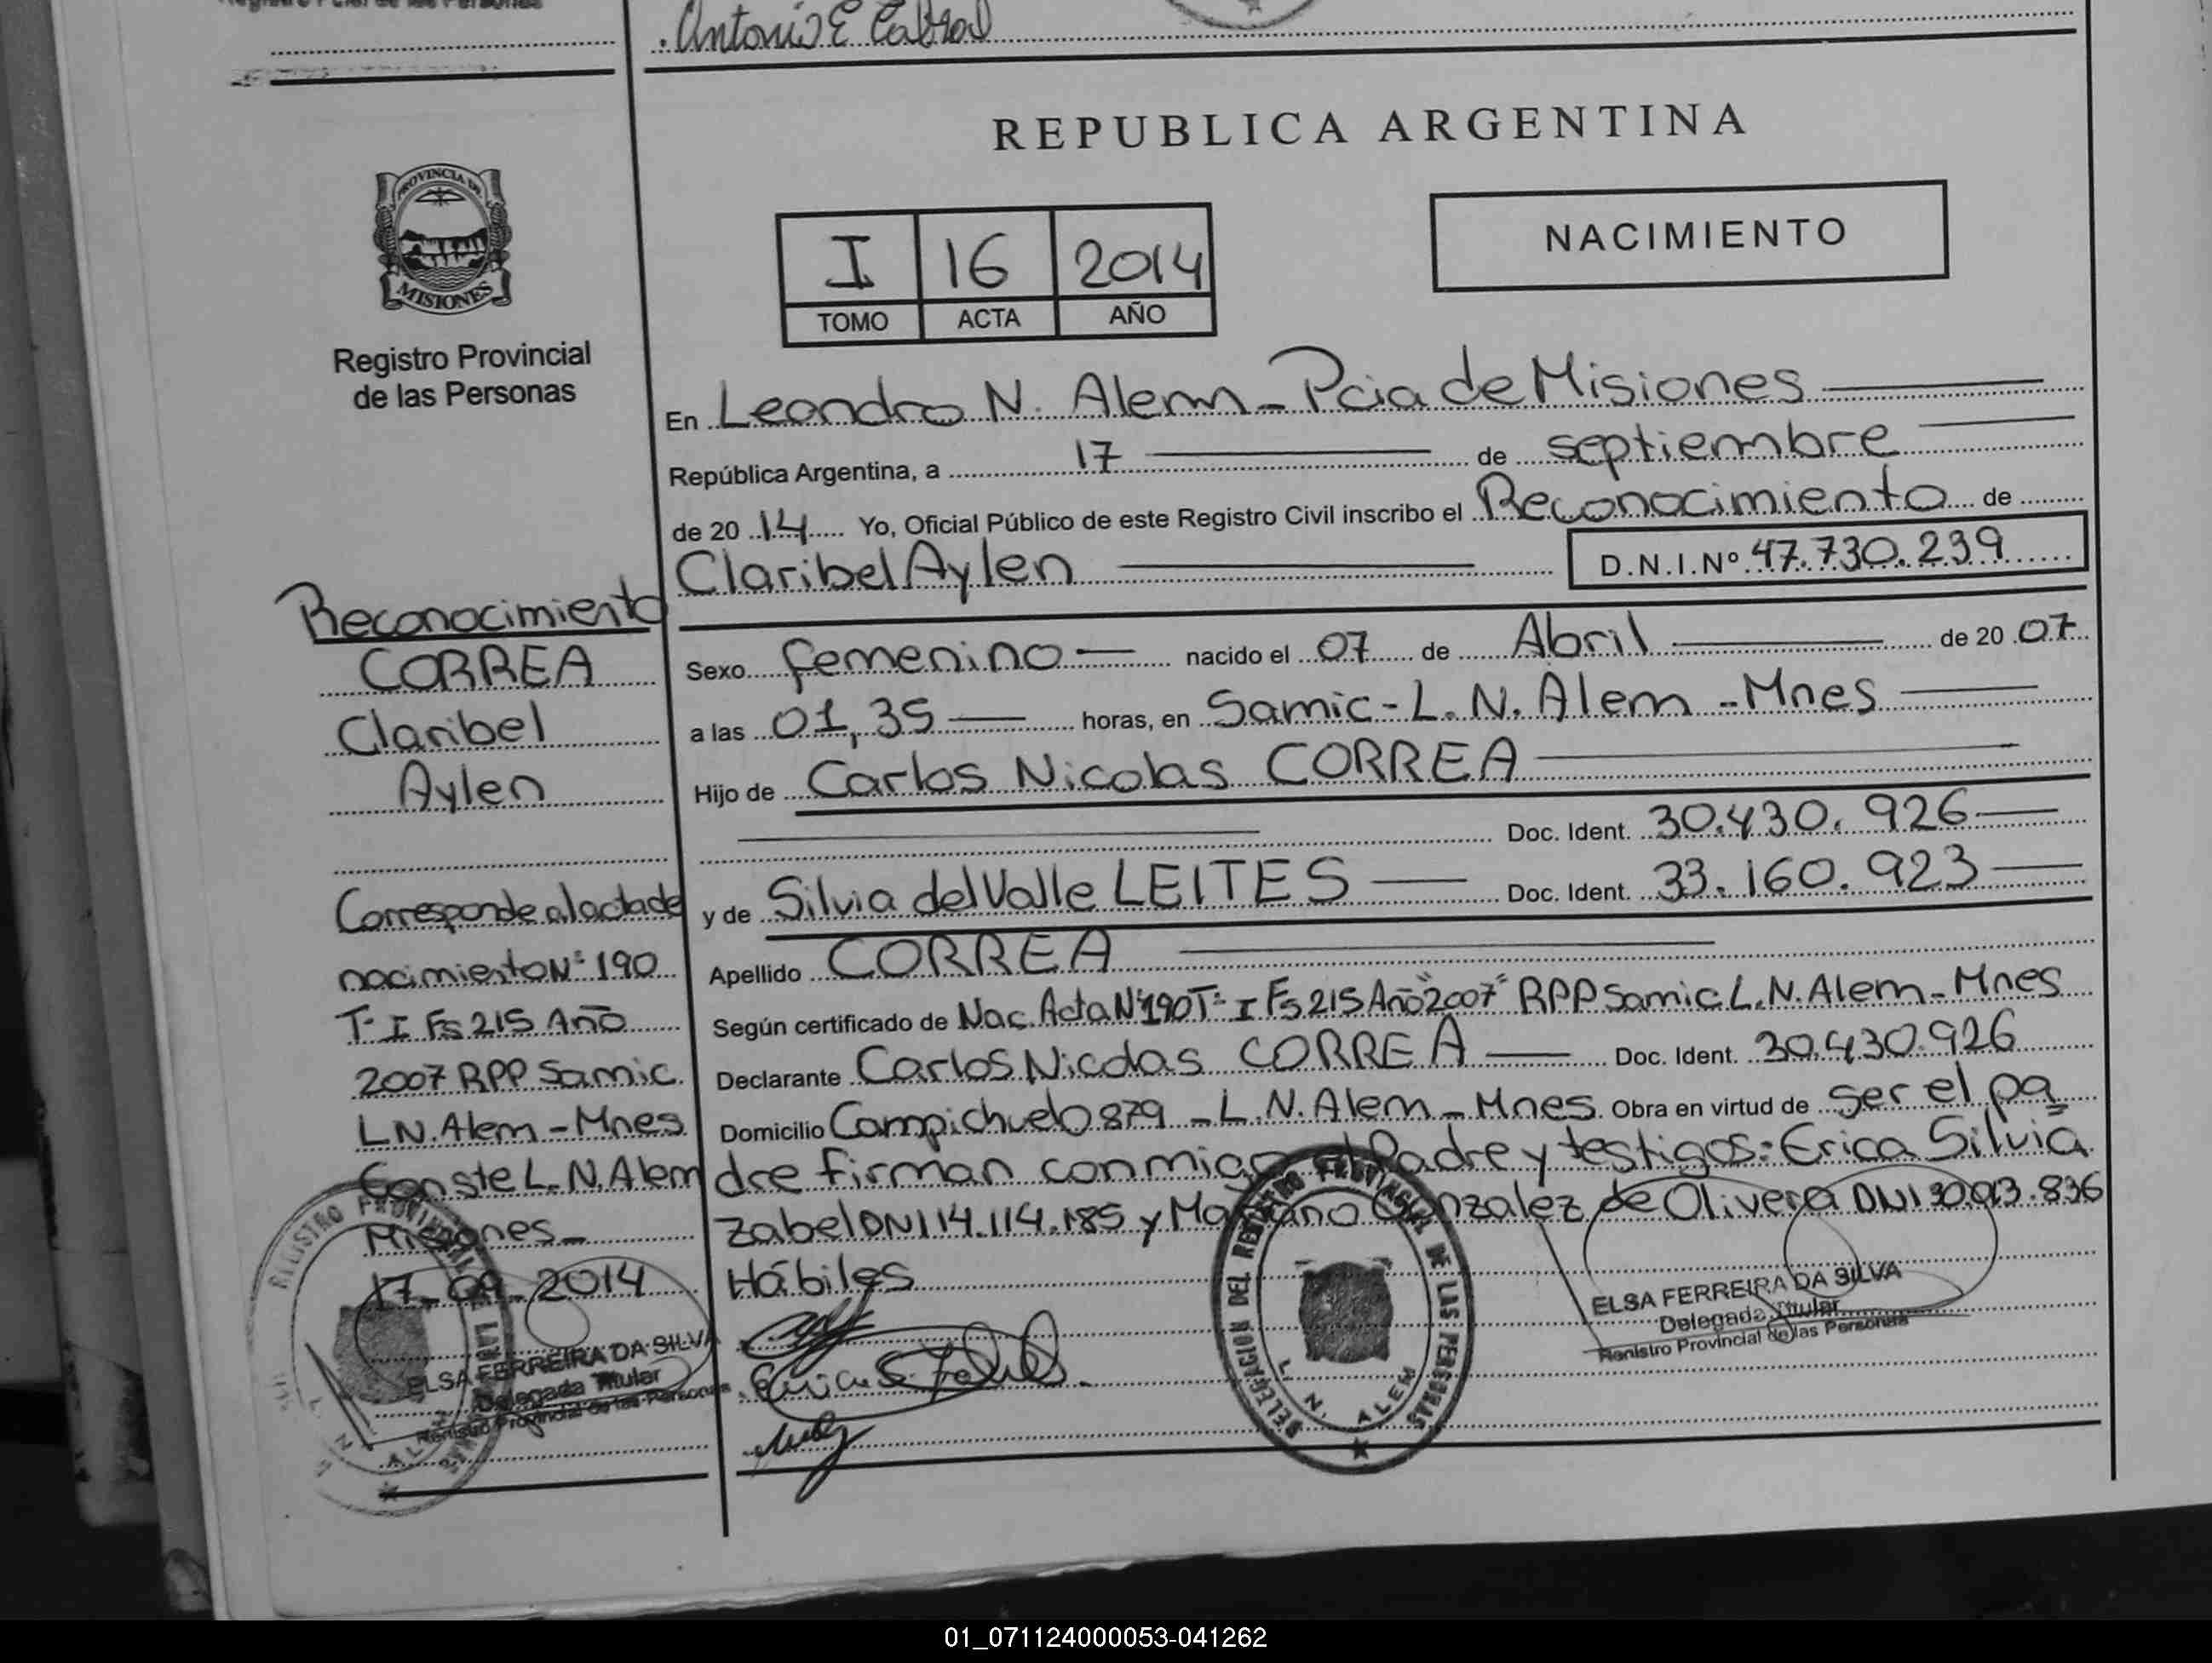 Registro Pcial de las Personas
Antonio E Cabral
REPUBLICA ARGENTINA
PROVINCIA DE
MISIONES
Registro Provincial
de las Personas
I 16 2014
TOMO ACTA AÑO
NACIMIENTO
En Leandro N. Alem - Pcia de Misiones
República Argentina, a 17 de septiembre
de 20 14 Yo, Oficial Público de este Registro Civil inscribo el Reconocimiento de
Claribel Aylen D.N.I.Nº 47.730.239
Sexo femenino nacido el 07 de Abril de 20 07
a las 01,35 horas, en Samic - L. N. Alem - Mnes
Hijo de Carlos Nicolas CORREA
Doc. Ident. 30.430.926
y de Silvia del Valle LEITES Doc. Ident. 33.160.923
Apellido CORREA
Según certificado de Nac. Acta Nº 190 Tº I Fs 215 Año "2007" RPP Samic L.N. Alem - Mnes
Declarante Carlos Nicolas CORREA Doc. Ident. 30.430.926
Domicilio Campichuelo 879 - L.N. Alem - Mnes. Obra en virtud de ser el pa
dre firman conmigo el Padre y testigos: Erica Silvia
Zabel DNI 14.114.185 y Gonzalez de Olivera DNI
Hábiles
Reconocimiento
CORREA
Claribel
Aylen
Corresponde al acta de
nacimiento Nº 190
Tº I Fs 215 Año
2007 RPP Samic
L N. Alem - Mnes
Conste L. N. Alem
Misiones -
17 - 09 - 2014
ELSA FERREIRA DA SILVA
Delegada Titular
Registro Provincial de las Personas
DELEGACION DEL REGISTRO PROVINCIAL DE LAS PERSONAS
L. N. ALEM
ELSA FERREIRA DA SILVA
Delegada Titular
Registro Provincial de las Personas
01_071124000053-041262